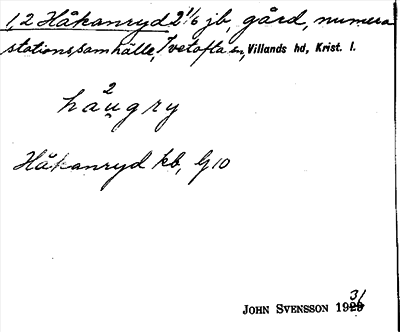 1, 2 Håkanryd 2 1/6 jb, gård, numera
stationssamhälle, Ivetofta sn, Villands hd, Krist. l.
2
håu̯gry
Håkanryd kb, G10
JOHN SVENSSON 1931